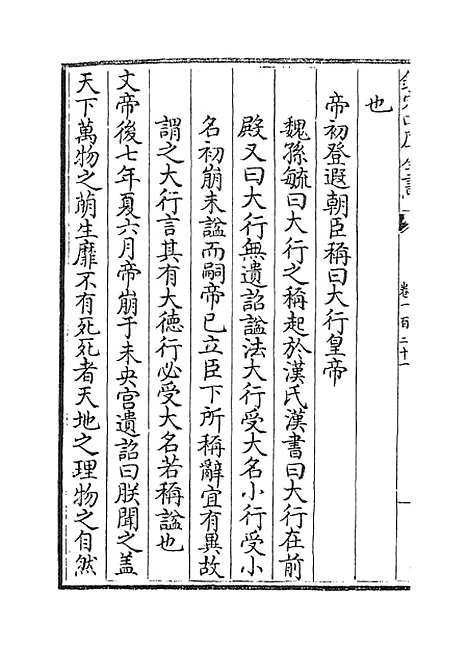 欽定四庫全書
卷一百二十一
也
帝初登遐朝臣稱曰大行皇帝
魏孫毓曰大行之稱起於漢氏漢書曰大行在前
殿又曰大行無遺詔諡法大行受大名小行受小
名初崩未諡而嗣帝已立臣下所稱辭宜有異故
謂之大行言其有大德行必受大名若稱諡也
文帝後七年夏六月帝崩于未央宫遺詔曰朕聞之蓋
天下萬物之萌生靡不有死死者天地之理物之自然